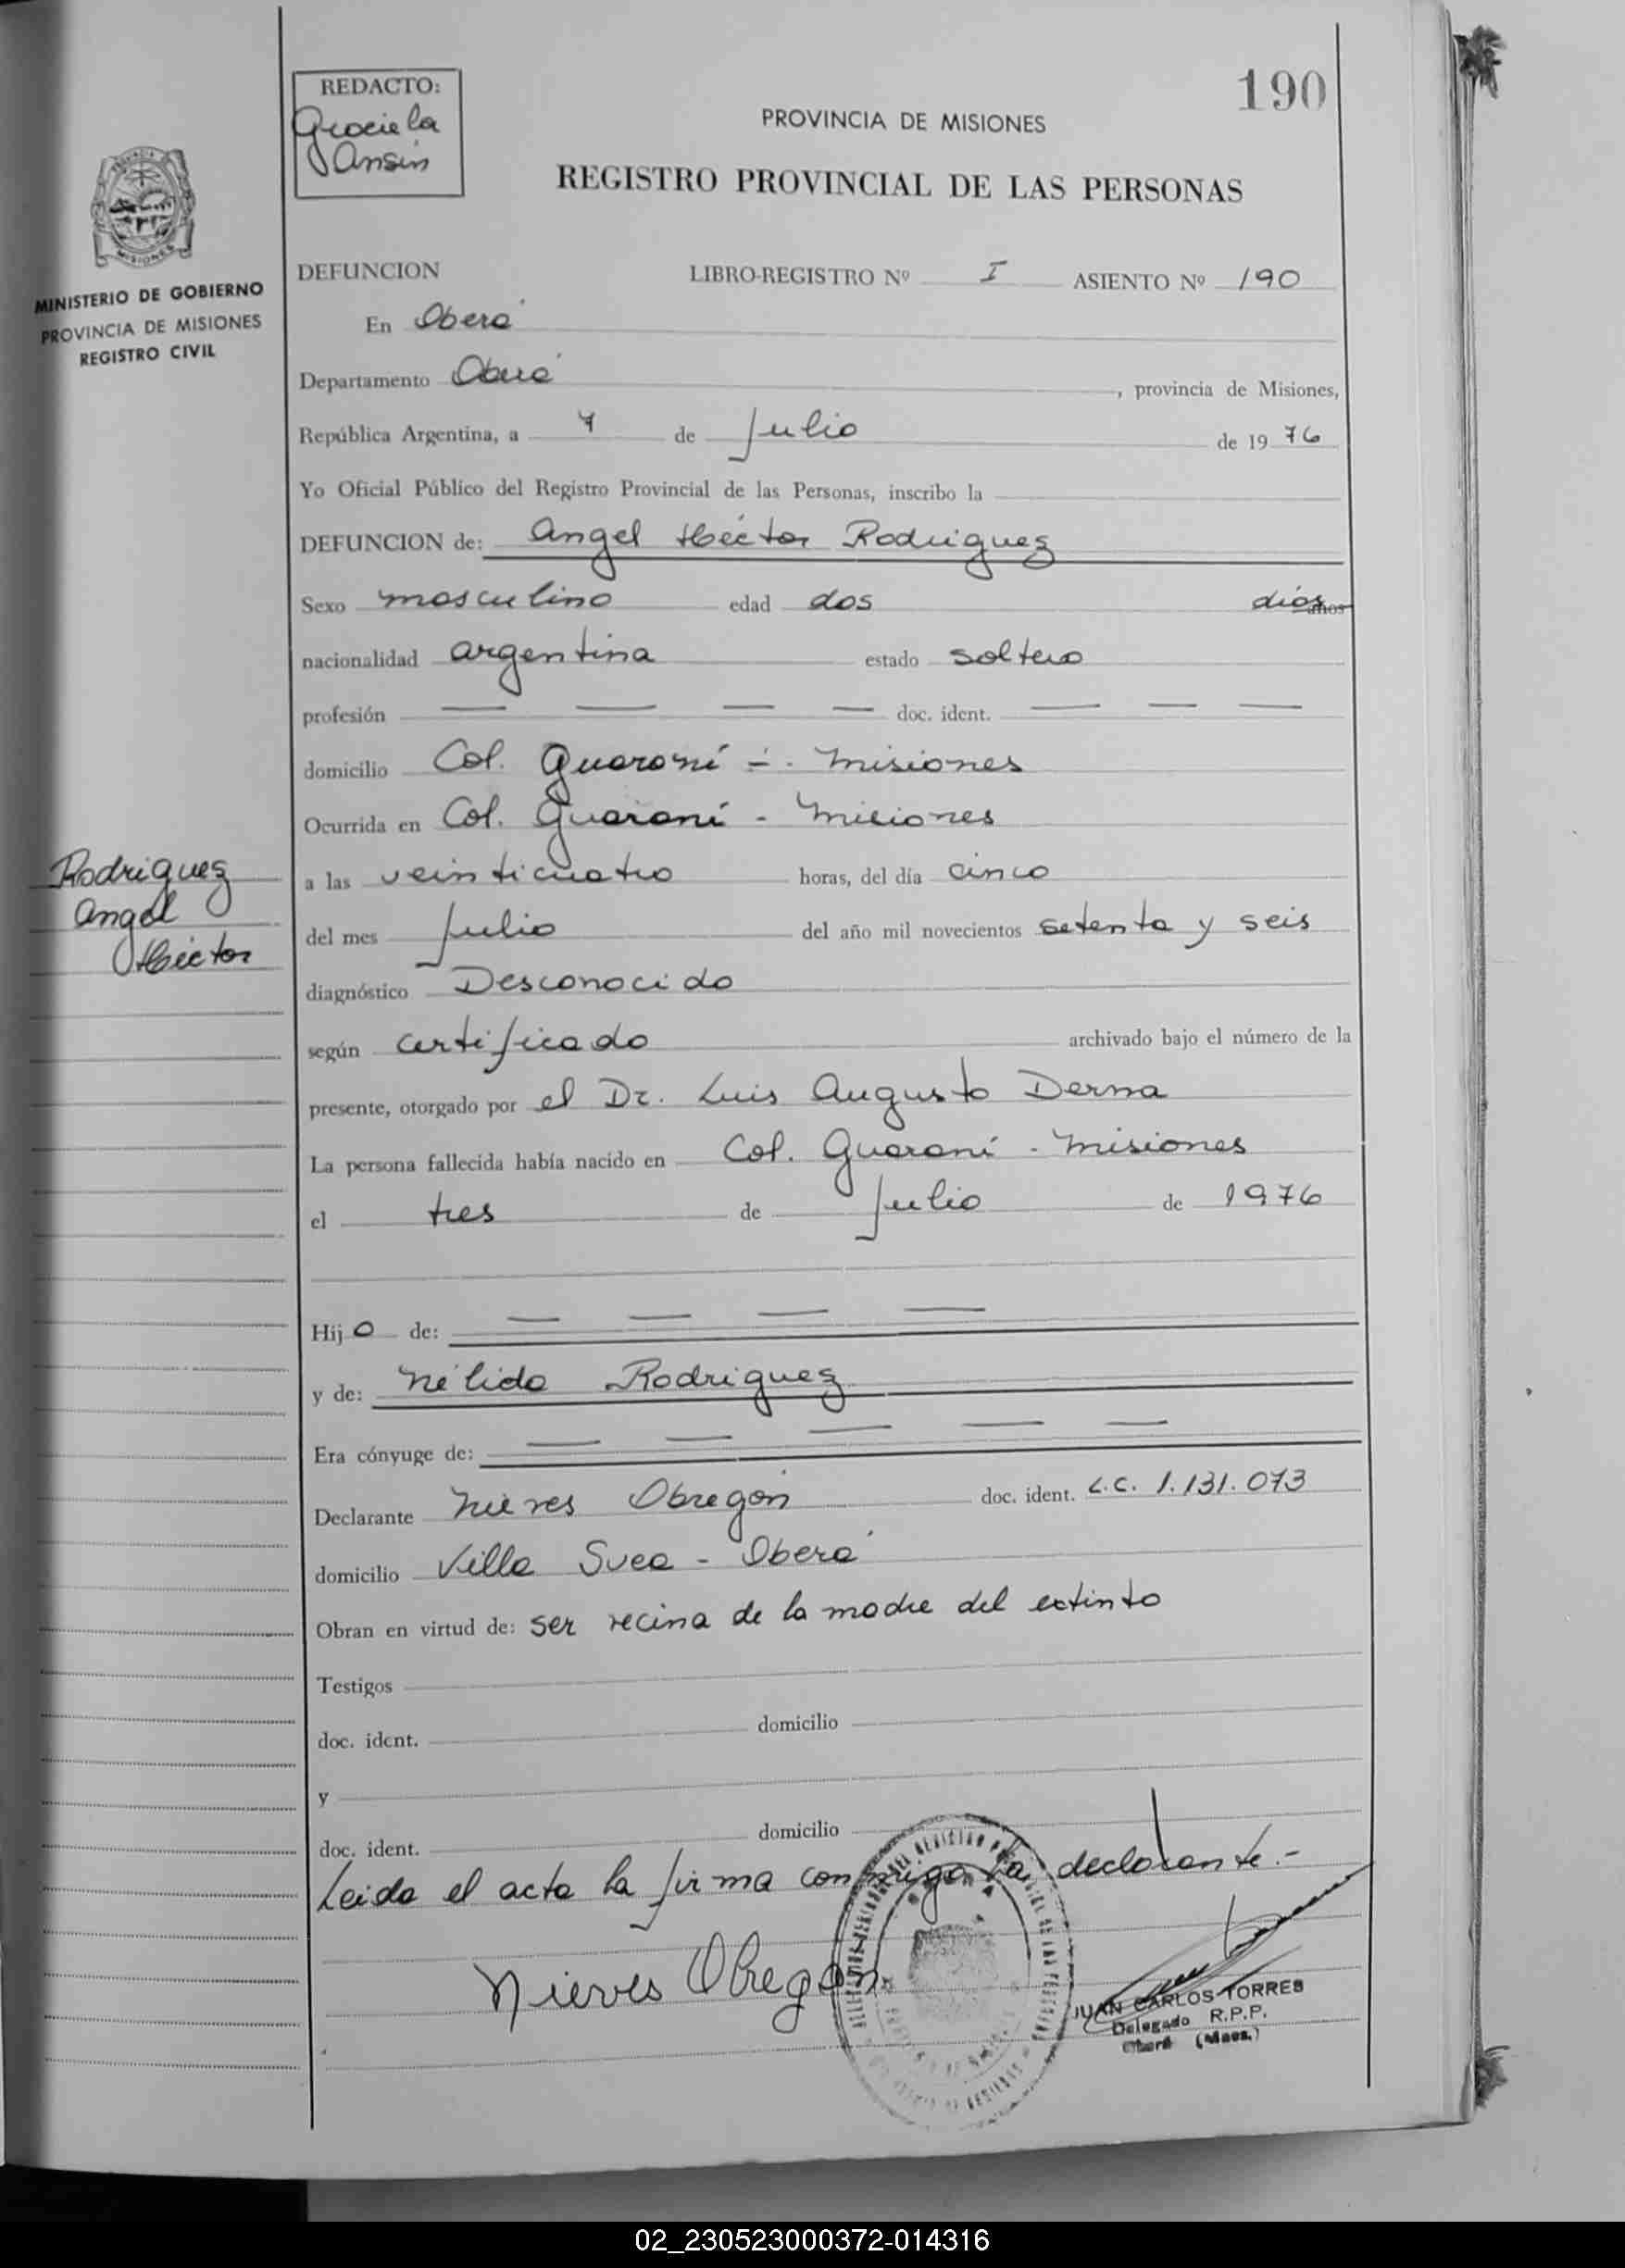 190
REDACTO:
Graciela
Ansin
PROVINCIA DE MISIONES
REGISTRO PROVINCIAL DE LAS PERSONAS
MISIONES
MINISTERIO DE GOBIERNO
PROVINCIA DE MISIONES
REGISTRO CIVIL
DEFUNCION LIBRO-REGISTRO Nº I ASIENTO Nº 190
En Oberá
Departamento Oberá, provincia de Misiones,
República Argentina, a 7 de Julio de 1976
Yo Oficial Público del Registro Provincial de las Personas, inscribo la
DEFUNCION de: Angel Héctor Rodriguez
Sexo masculino edad dos días años
nacionalidad argentina estado soltero
profesión — — — — doc. ident. — — —
domicilio Col. Guaraní -. Misiones
Ocurrida en Col. Guaraní - Misiones
a las veinticuatro horas, del día cinco
del mes Julio del año mil novecientos setenta y seis
diagnóstico Desconocido
según certificado archivado bajo el número de la
presente, otorgado por el Dr. Luis Augusto Derna
La persona fallecida había nacido en Col. Guaraní - Misiones
el tres de Julio de 1976
Hijo de: — — — —
y de: Nélida Rodriguez
Era cónyuge de: — — — — —
Declarante Nieves Obregón doc. ident. L.C. 1.131.073
domicilio Villa Svea - Oberá
Obran en virtud de: ser vecina de la madre del extinto
Testigos
doc. ident. domicilio
y
doc. ident. domicilio
Leida el acta la firma conmigo la declarante.-
Nieves Obregon
JUAN CARLOS TORRES
Delegado R.P.P.
Oberá (Mnes.)
Rodriguez
Angel
Héctor
02_230523000372-014316